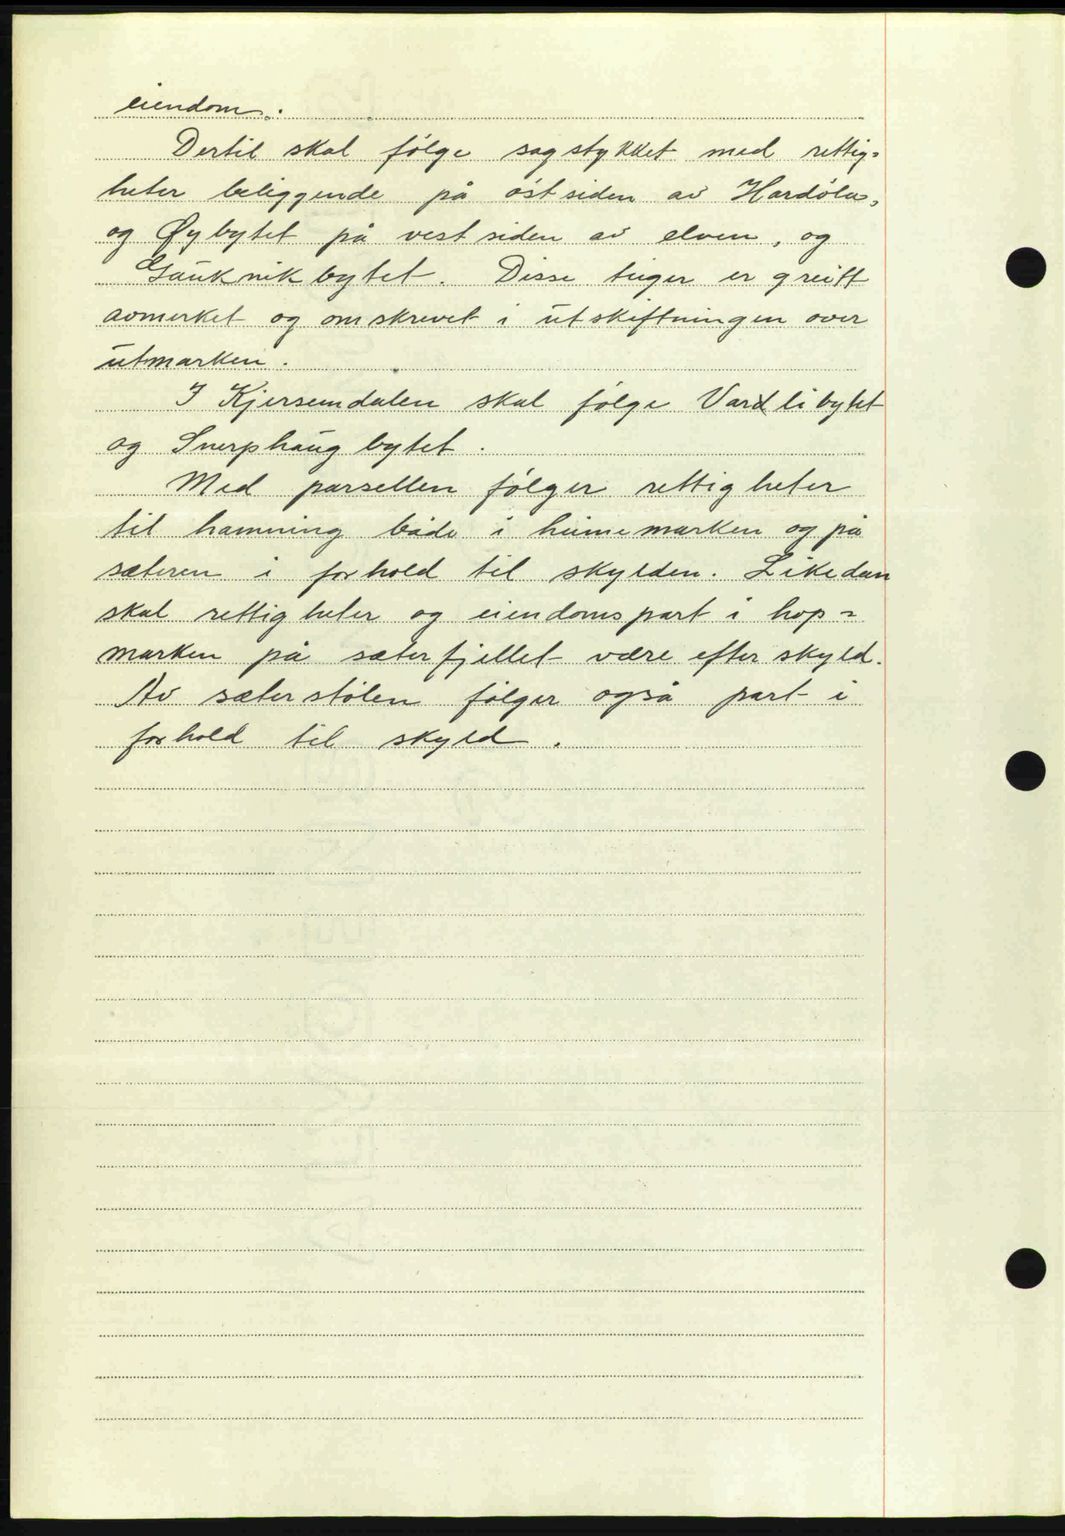 eiendom.
Dertil skal følge sagstykket med rettig=
heter beliggende på østsiden av Hardøla,
og Øybytet på vestsiden av elven, og
Gauknikbytet. Disse teiger er greitt
avmerket og omskrevet i utskiftningen over
utmarken.
I Kjersemdalen skal følge Vardlibytet
og Snerphaugbytet.
Med parsellen følger rettigheter
til hamning både i heimemarken og på
sæteren i forhold til skylden. Likedan
skal rettigheter og eiendomspart i hop=
marken på sæterfjellet være efter skyld.
Av sæterstølen følger også part i
forhold til skyld.